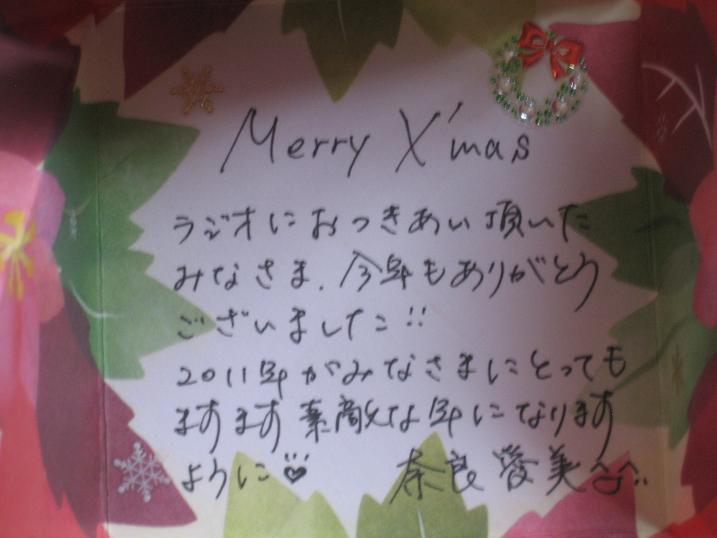 Merry X'mas
ラジオにおつきあい頂いた
みなさま、今年もありがとう
ございました!!
2011年がみなさまにとっても
ますます素敵な年になります
ように♡ 奈良愛美